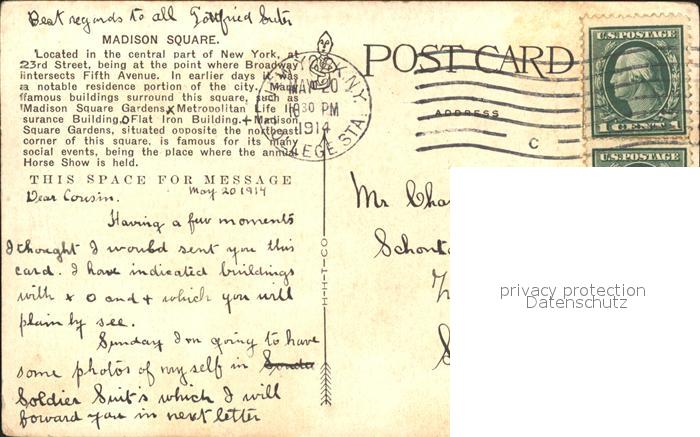 Best regards to all Gottfried Suter
MADISON SQUARE.
Located in the central part of New York, at
23rd Street, being at the point where Broadway
intersects Fifth Avenue. In earlier days it was
a notable residence portion of the city. Many
famous buildings surround this square, such as
Madison Square Gardens x Metropolitan Life In-
surance Building. O Flat Iron Building. + Madison
Square Gardens, situated opposite the northeast
corner of this square, is famous for its many
social events, being the place where the annual
Horse Show is held.
THIS SPACE FOR MESSAGE
May 20 1914
Dear Cousin.
Having a few moments
I thought I would sent you this
card. I have indicated buildings
with x o and + which you will
plainly see.
Sunday I'm going to have
some photos of my self in
Soldier Suit's which I will
forward you in next letter
H-H-T-CO
POST CARD
ADDRESS
N.Y.
MAY 20
30 PM
1914
COLLEGE STA.
C
U.S. POSTAGE
1 CENT 1
U.S. POSTAGE
Mr Cha
Schont
privacy protection
Datenschutz